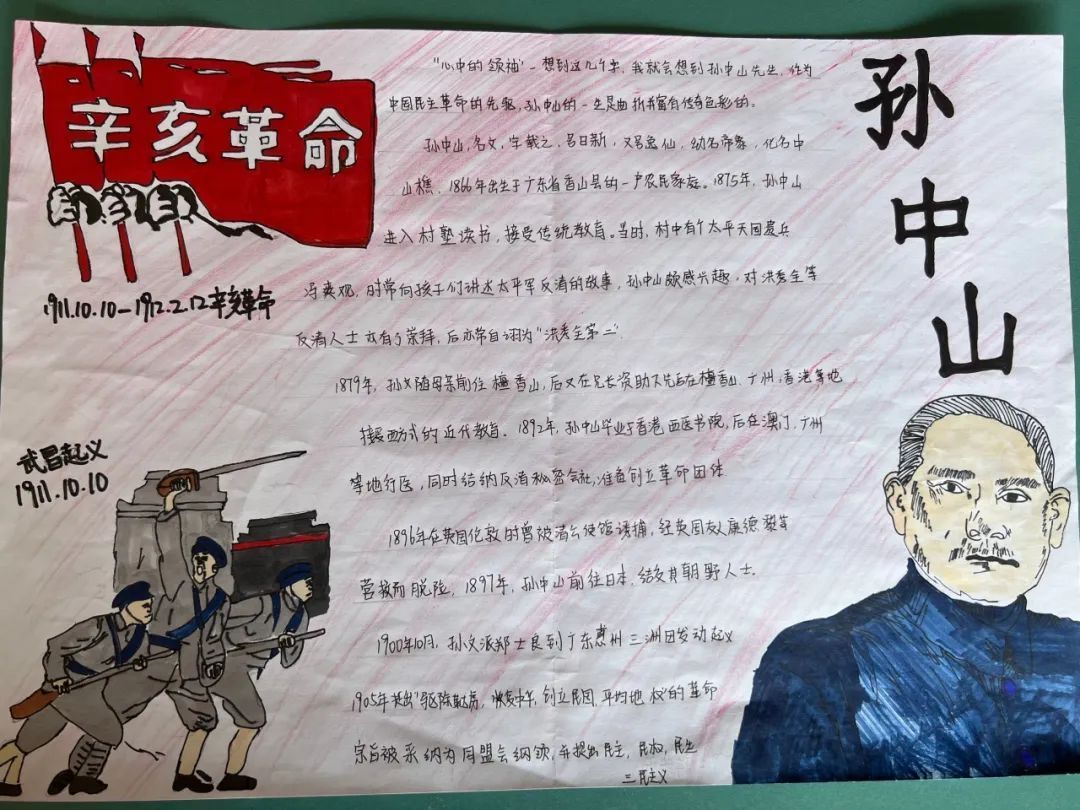 辛亥革命
1911.10.10-1912.2.12辛亥革命
武昌起义
1911.10.10
孙中山
"心中的领袖"一想到这几个字,我就会想到孙中山先生,作为
中国民主革命的先驱,孙中山的一生是曲折并富有传奇色彩的。
孙中山,名文,字载之,号日新,又号逸仙,幼名帝象,化名中
山樵,1866年出生于广东省香山县的一户农民家庭。1875年,孙中山
进入村塾读书,接受传统教育。当时,村中有个太平天国老兵
冯爽观,时常向孩子们讲述太平军反清的故事,孙中山颇感兴趣,对洪秀全等
反清人士亦有了崇拜,后亦常自诩为"洪秀全第二"
1879年,孙文随母亲前往檀香山,后又在兄长资助下先后在檀香山、广州,香港等地
接受西方式的近代教育。1892年,孙中山毕业于香港西医书院,后在澳门,广州
等地行医,同时结纳反清秘密会社,准备创立革命团体
1896年在英国伦敦时曾被清公使馆诱捕,经英国友人康德黎等
营救而脱险,1897年,孙中山前往日本,结交其朝野人士。
1900年10月,孙文派郑士良到广东惠州三洲田发动起义
1905年提出"驱除鞑虏,恢复中华,创立民国,平均地权"的革命
宗旨被采纳为同盟会纲领,并提出民主,民权,民生
三民主义